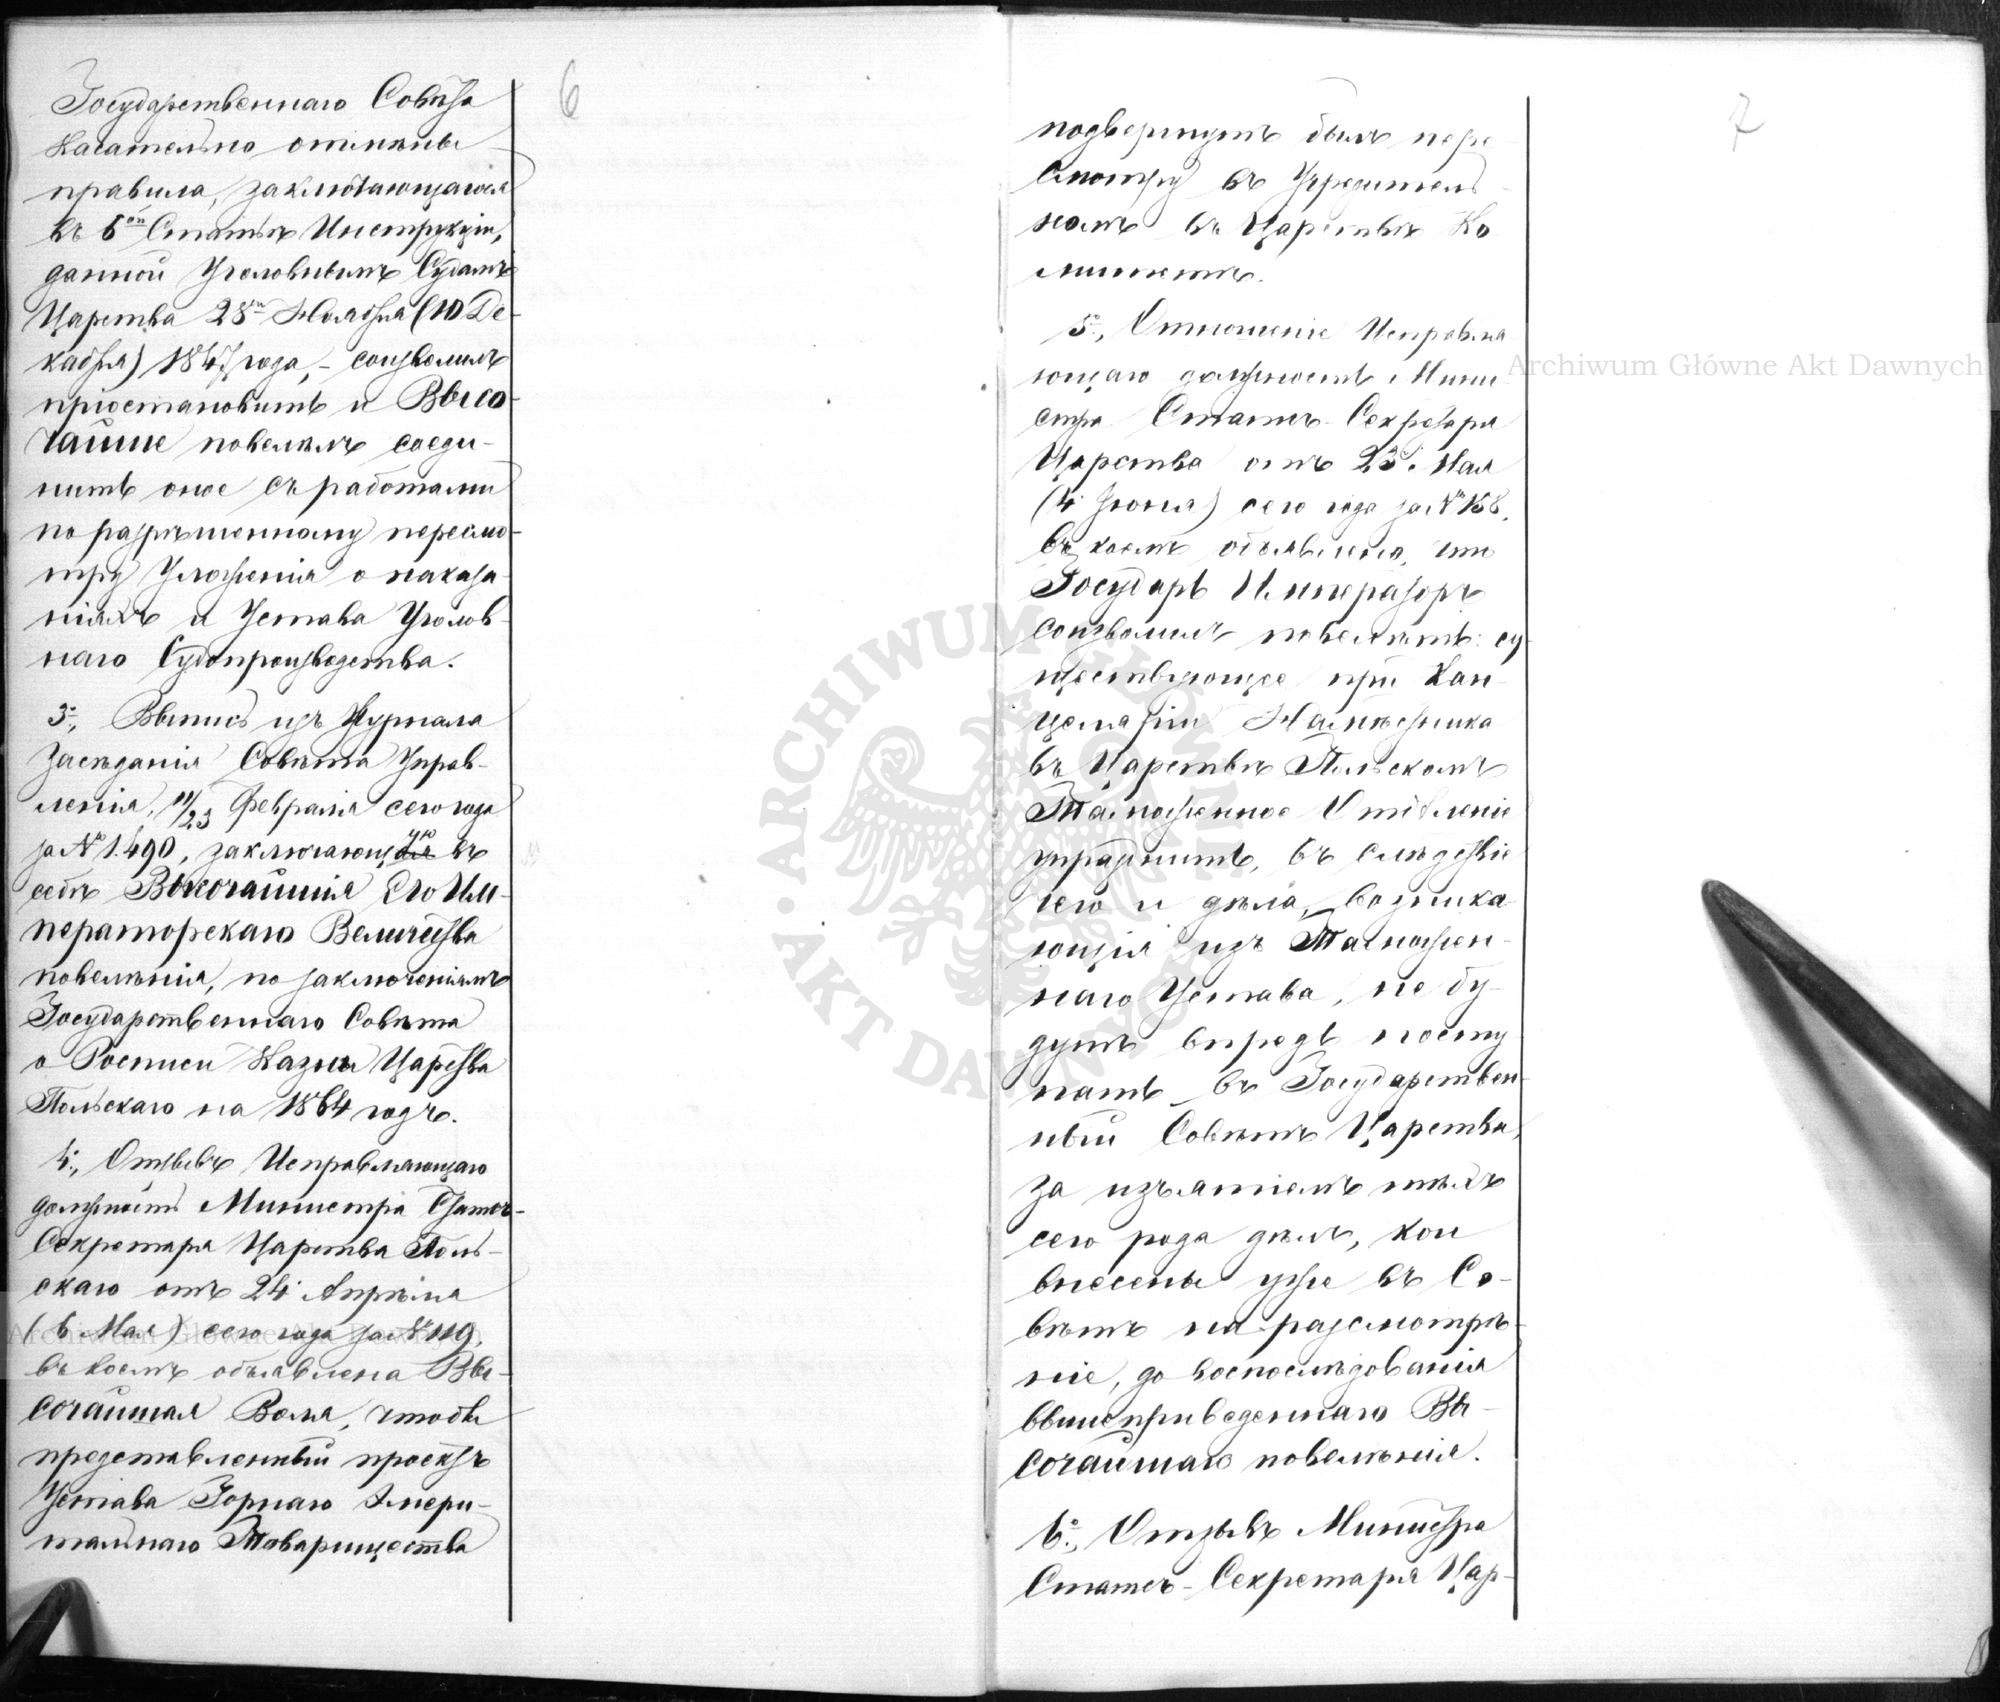 6
Государственнаго Совѣта
касательно отмѣны
правила, заключающагося
въ 6ой Статьѣ Инструкціи,
данной Уголовнымъ Судамъ
Царства 28го Ноября (10 Де-
кабря) 1847 года, - соизволилъ
пріостановить и Высо-
чайше повелѣлъ соеди-
нить оное съ работами
по разрѣшенному пересмо-
тру Уложенія о наказа-
ніяхъ и Устава Уголов-
наго Судопроизводства.
3., Выпись изъ Журнала
Засѣданія Совѣта Управ-
ленія, 11/23 Февраля сего года
за № 1.490, заключающую въ
себѣ Высочайшія Его Им-
ператорскаго Величества
повелѣнія, по заключеніямъ
Государственнаго Совѣта
о Росписи Казны Царства
Польскаго на 1864 годъ.
4., Отзывъ Исправляющаго
должность Министра Статсъ-
Секретаря Царства Поль-
скаго отъ 24 Апрѣля
(6 Мая) сего года за № 119,
въ коемъ объявлена Вы-
сочайшая Воля, чтобы
представленный проектъ
Устава Горнаго Эмери-
тальнаго Товарищества
7
подвергнутъ былъ пере-
смотру въ Учредитель-
номъ въ Царствѣ Ко
митетѣ.
5., Отношеніе Исправля-
ющаго должность Мини-
стра Статсъ-Секретаря
Царства отъ 23 Мая
(4 Іюня) сего года за № 158,
въ коемъ объявлено, что
Государь Императоръ
соизволилъ повелѣть: су-
ществующее при Кан-
целяріи Намѣстника
въ Царствѣ Польскомъ
Таможенное Отдѣленіе
упразднить, въ слѣдствіе
чего и дѣла, возника-
ющія изъ Таможен-
наго Устава, не бу-
дутъ впредь посту
пать въ Государствен-
ный Совѣтъ Царства,
за изъятіемъ тѣхъ
сего рода дѣлъ, кои
внесены уже въ Со-
вѣтъ на разсмотрѣ-
ніе, до воспослѣдованія
вышеприведеннаго Вы-
сочайшаго повелѣнія.
6., Отзывъ Министра
Статсъ-Секретаря Цар-
Archiwum Główne Akt Dawnych
Archiwum Główne Akt Dawnych
ARCHIWUM GŁÓWNE
AKT DAWNYCH